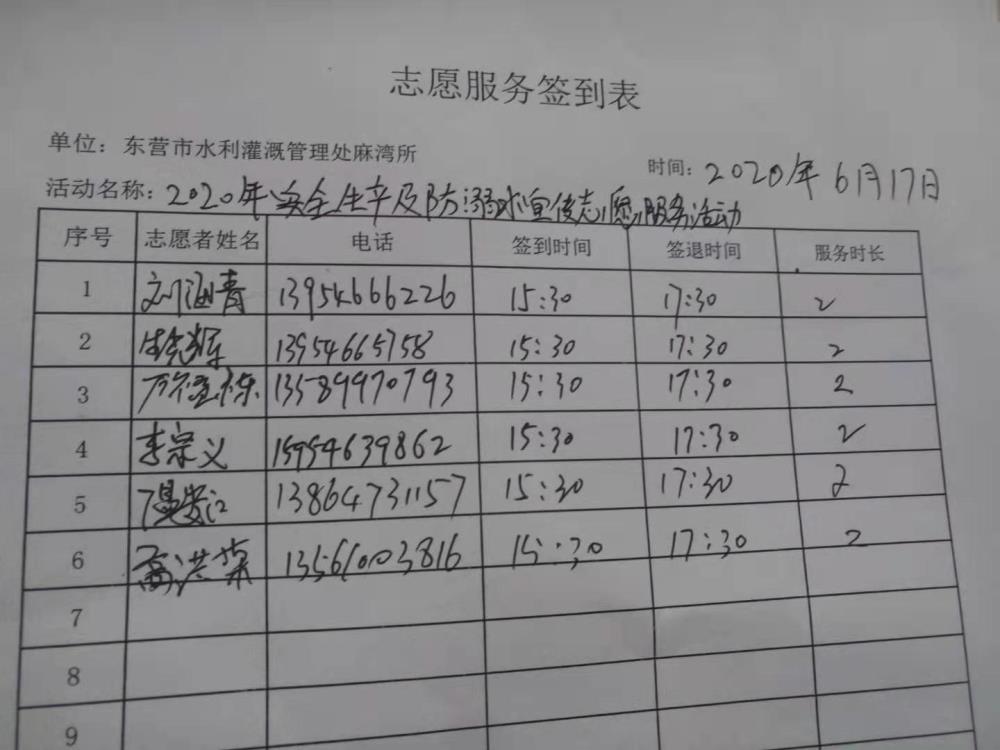 志愿服务签到表
单位：东营市水利灌溉管理处麻湾所
时间：2020年6月17日
活动名称：2020年安全生产及防溺水宣传志愿服务活动
序号 志愿者姓名 电话 签到时间 签退时间 服务时长
1 刘涵青 13954666226 15:30 17:30 2
2 13954665758 15:30 17:30 2
3 13589970793 15:30 17:30 2
4 李宗义 15954639862 15:30 17:30 2
5 13864731157 15:30 17:30 2
6 高洪 13561003816 15:30 17:30 2
7
8
9